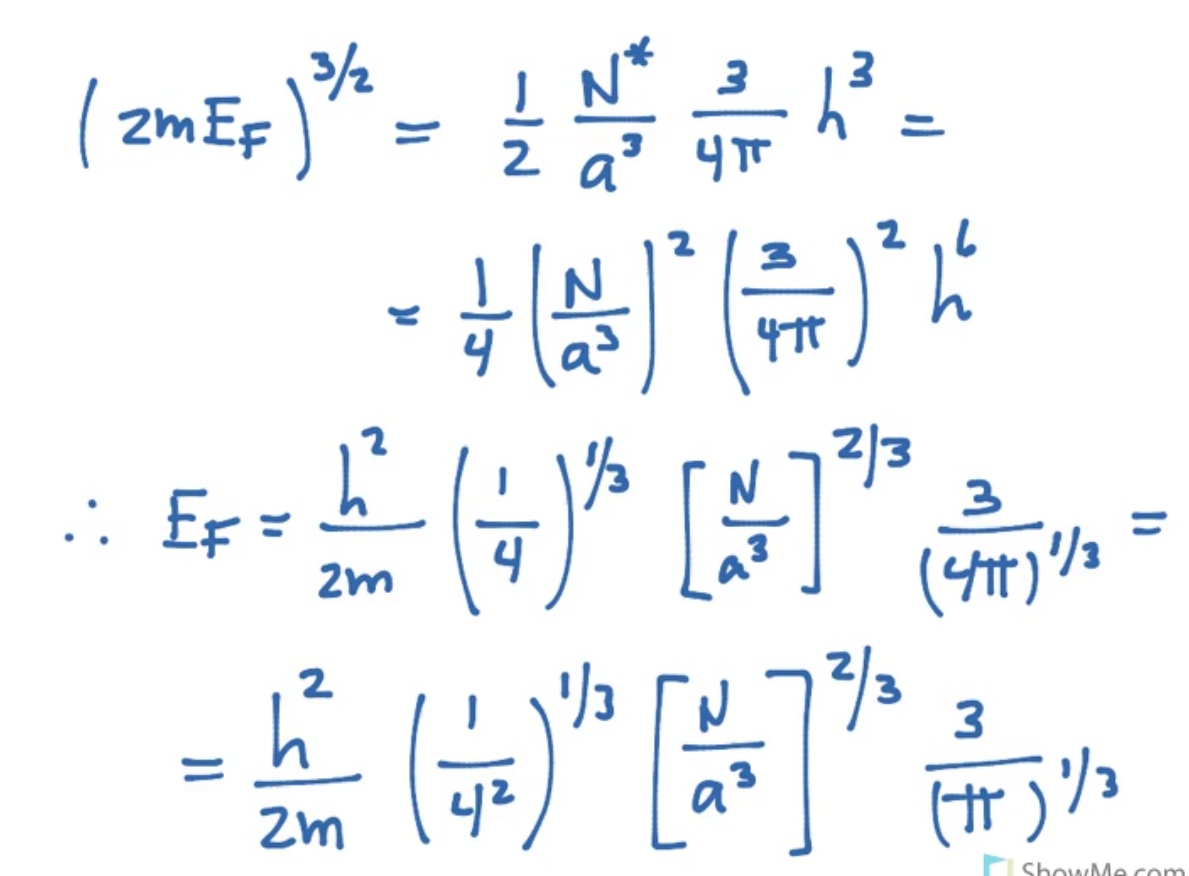 (2mE_F)^{3/2} = \frac{1}{2} \frac{N^*}{a^3} \frac{3}{4\pi} h^3 =
= \frac{1}{4} \left(\frac{N}{a^3}\right)^2 \left(\frac{3}{4\pi}\right)^2 h^6
\therefore E_F = \frac{h^2}{2m} \left(\frac{1}{4}\right)^{1/3} \left[\frac{N}{a^3}\right]^{2/3} \frac{3}{(4\pi)^{1/3}} =
= \frac{h^2}{2m} \left(\frac{1}{4^2}\right)^{1/3} \left[\frac{N}{a^3}\right]^{2/3} \frac{3}{(\pi)^{1/3}}
ShowMe.com